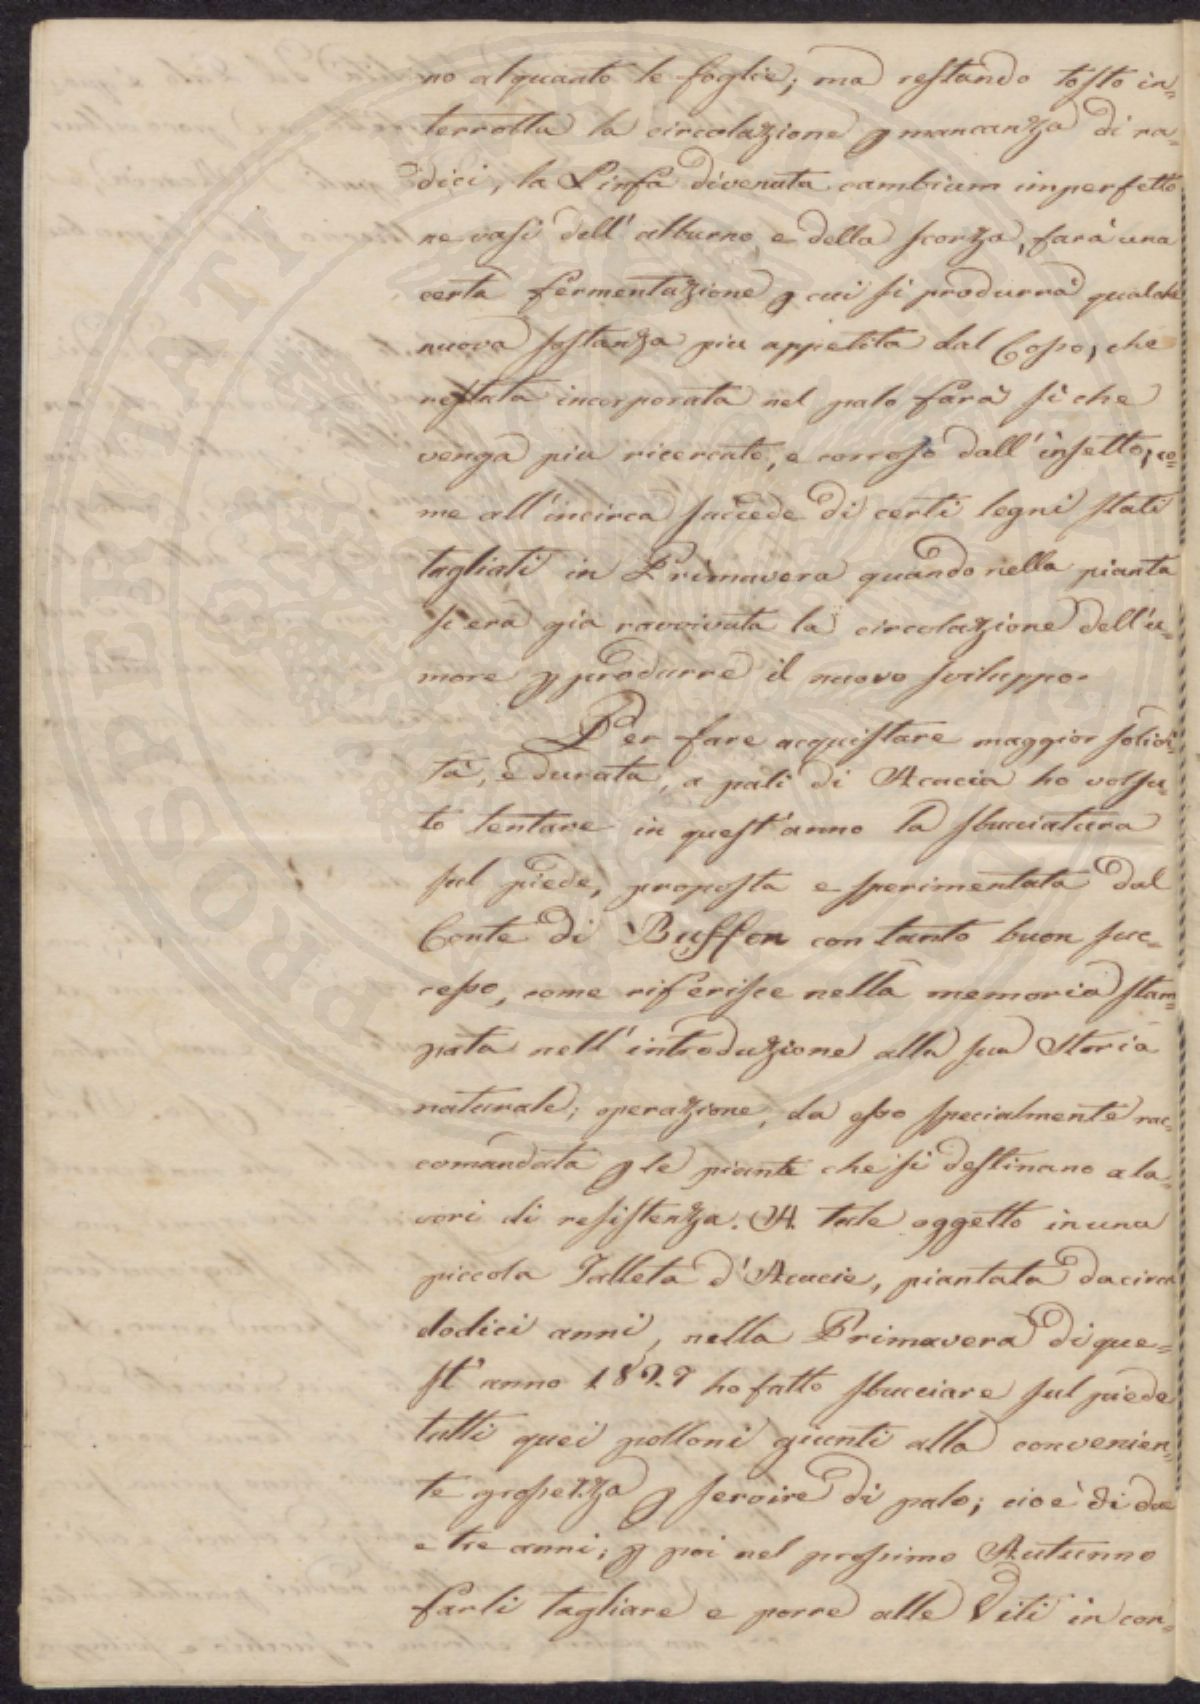 no alquanto le foglie; ma restando tosto in=
terrotta la circolazione p mancanza di ra=
dici, la Linfa divenuta cambium imperfetto
ne vasi dell'alburno e della scorza, farà una
certa fermentazione p cui si produrrà qualche
nuova sostanza piu appetita dal Coso, che
restata incorporata nel palo farà si che
venga piu ricercato, e corroso dall'insetto, co=
me all'incirca succede di certi legni stati
tagliati in Primavera quando nella pianta
si era già ravvivata la circolazione dell'u=
more p produrre il nuovo sviluppo.
Per fare acquistare maggior solidi=
tà, e durata, a pali di Acacia ho volsu=
to tentare in quest'anno la sbucciatura
sul piede, proposta e sperimentata dal
Conte di Buffon con tanto buon suc=
cesso, come riferisce nella memoria stam=
pata nell'introduzione alla sua Storia
naturale; operazione, da esso specialmente rac=
comandata p le piante che si destinano a la=
vori di resistenza. A tale oggetto in una
piccola Talleta d'Acacie, piantata da circa
dodici anni, nella Primavera di que=
st'anno 1827 ho fatto sbucciare sul piede
tutti quei polloni giunti alla convenien=
te grossezza p servire di palo; cioè di due
e tre anni; p poi nel prossimo Autunno
farli tagliare e porre alle Viti in con=
PROSPERITATI